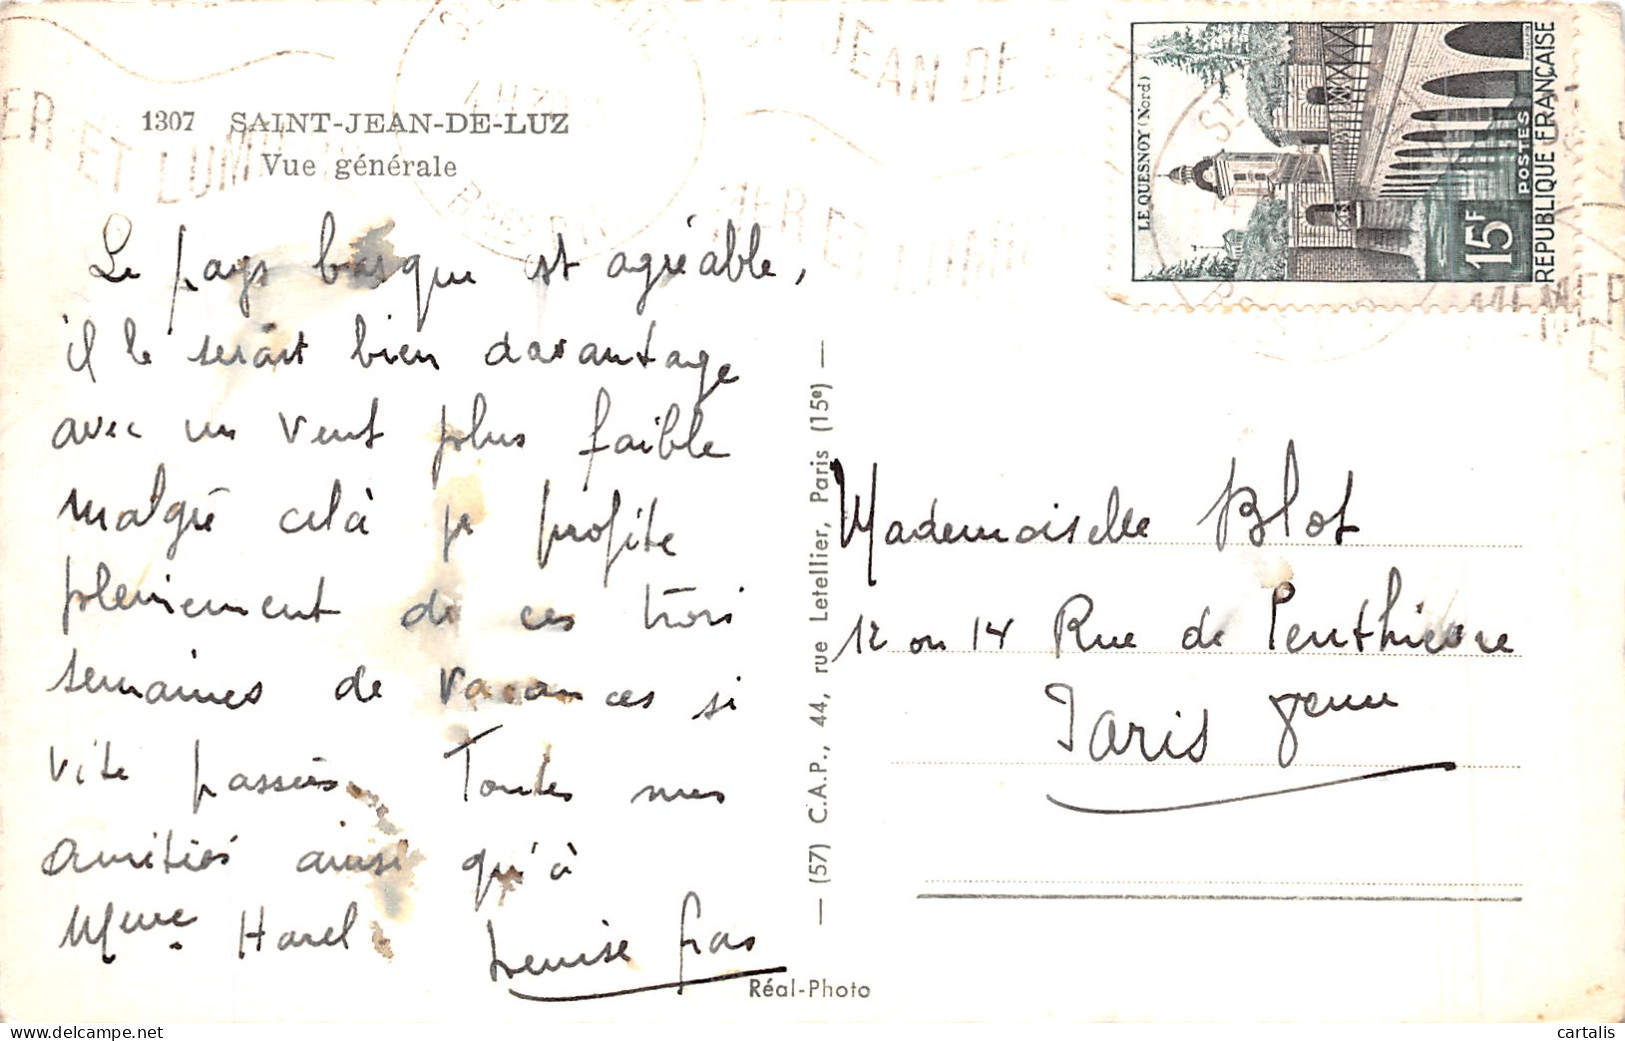 1307 SAINT-JEAN-DE-LUZ
Vue générale
Le pays basque est agréable,
il le serait bien davantage
avec un vent plus faible
malgré celà je profite
pleinement de ces trois
semaines de vacances si
vite passées. Toutes mes
amitiés ainsi qu'à
Mme Harel.
(57) C.A.P., 44, rue Letellier, Paris (15e)
Réal-Photo
LE QUESNOY (Nord)
15F
POSTES
REPUBLIQUE FRANÇAISE
ST JEAN DE LUZ
MER ET LUMI
Mademoiselle Blot
12 ou 14 Rue de Penthièvre
Paris 8eme
cartalis